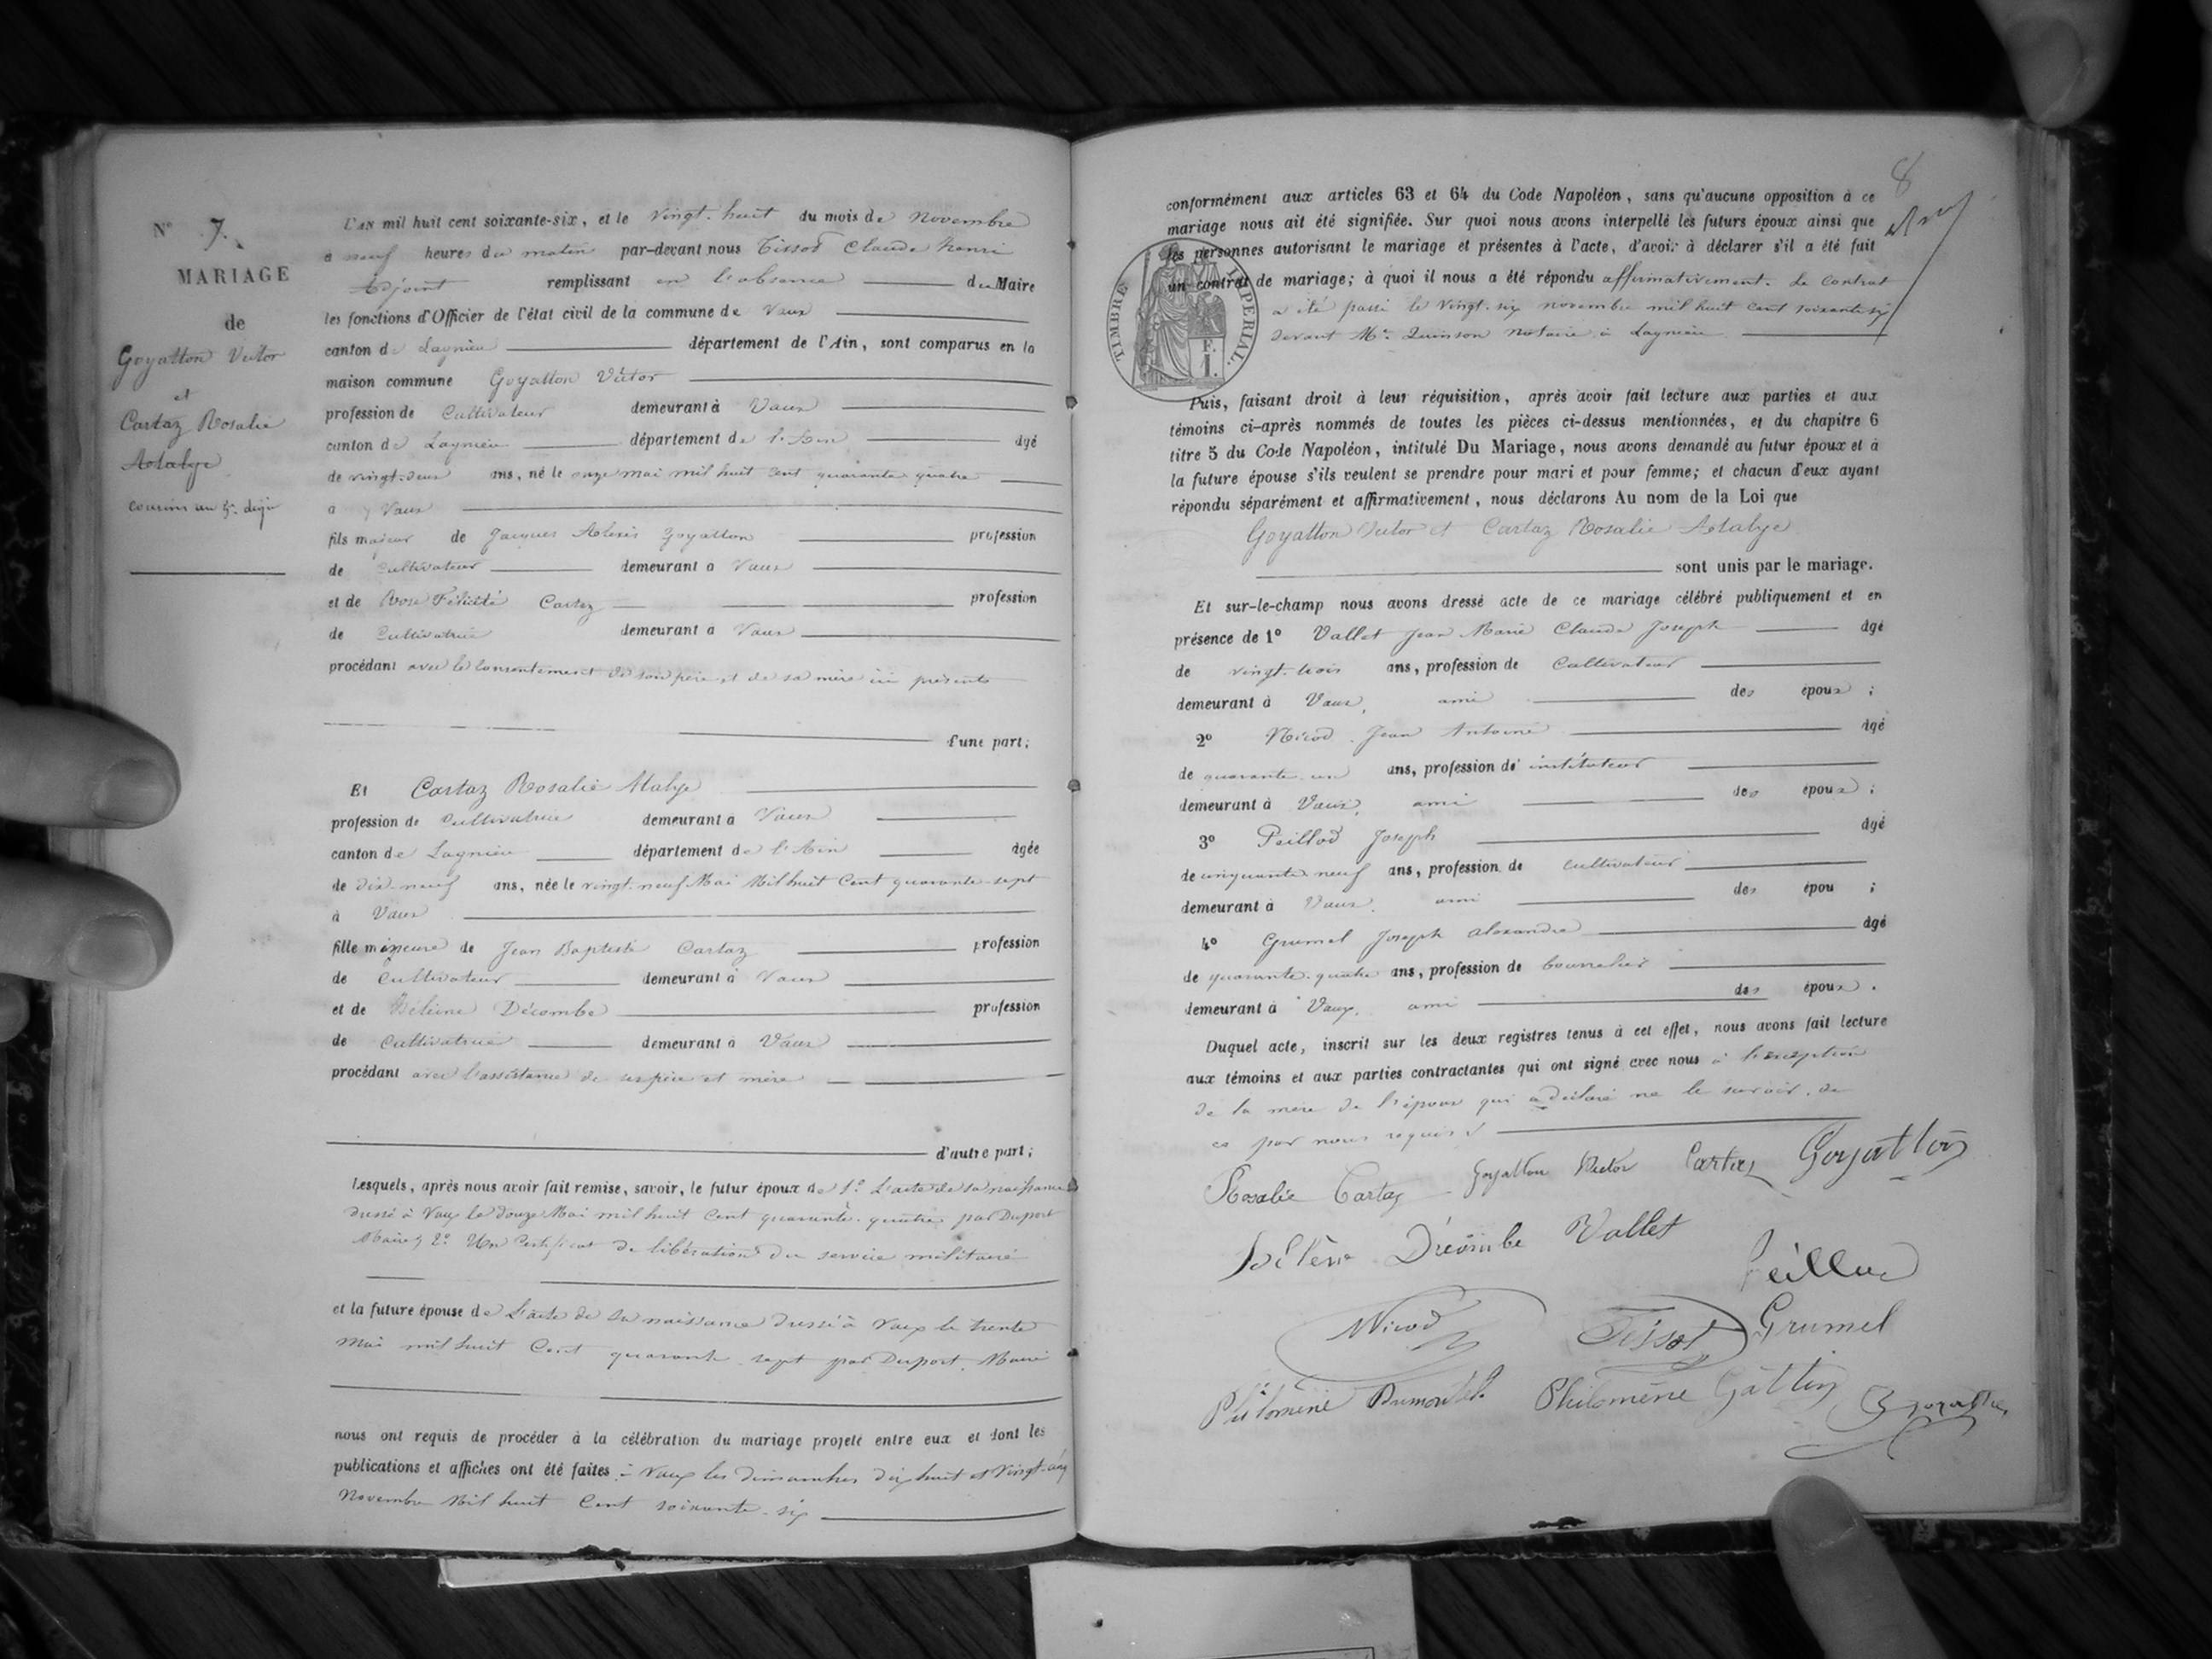 N° 7.
MARIAGE
de
Goyatton Victor
et
Cartaz Rosalie
Adalge
cousins au 5e. degré
L'AN mil huit cent soixante-six, et le vingt-huit du mois de novembre
à neuf heures du matin par-devant nous Tissot Claude henri
Adjoint remplissant en l'absence du Maire
les fonctions d'Officier de l'état civil de la commune de Vaux
canton de Lagnieu département de l'Ain, sont comparus en la
maison commune Goyatton Victor
profession de Cultivateur demeurant à Vaux
canton de Lagnieu département de l'Ain âgé
de vingt-deux ans, né le onze mai mil huit cent quarante quatre
à Vaux
fils majeur de Jacques Alexis Goyatton profession
de cultivateur demeurant à Vaux
et de Rose Félicité Cartaz profession
de Cultivatrice demeurant à Vaux
procédant avec le consentement de son père et de sa mère ici présents
d'une part;
Et Cartaz Rosalie Adalge
profession de Cultivatrice demeurant à Vaux
canton de Lagnieu département de l'Ain âgée
de dix-neuf ans, née le vingt-neuf Mai Mil huit Cent quarante-sept
à Vaux
fille mineure de Jean Baptiste Cartaz profession
de Cultivateur demeurant à Vaux
et de Hélène Décombe profession
de Cultivatrice demeurant à Vaux
procédant avec l'assistance de ses père et mère
d'autre part;
Lesquels, après nous avoir fait remise, savoir, le futur époux de 1° L'acte de sa naissance
dressé à Vaux le douze Mai mil huit Cent quarante-quatre par Duport
Maire, 2° Un Certificat de libération du service militaire
et la future épouse de L'acte de sa naissance dressé à Vaux le trente
Mai mil huit Cent quarante sept par Duport, Maire
nous ont requis de procéder à la célébration du mariage projeté entre eux et dont les
publications et affiches ont été faites à Vaux les dimanches dix huit et vingt-cinq
Novembre Mil huit Cent soixante-six
8
conformément aux articles 63 et 64 du Code Napoléon, sans qu'aucune opposition à ce
mariage nous ait été signifiée. Sur quoi nous avons interpellé les futurs époux ainsi que
les personnes autorisant le mariage et présentes à l'acte, d'avoir à déclarer s'il a été fait
un contrat de mariage; à quoi il nous a été répondu affirmativement. Le contrat
a été passé le Vingt-six novembre mil huit cent soixante six
devant Me. Quinson Notaire à Lagnieu
TIMBRE IMPÉRIAL.
F.
1.
Puis, faisant droit à leur réquisition, après avoir fait lecture aux parties et aux
témoins ci-après nommés de toutes les pièces ci-dessus mentionnées, et du chapitre 6
titre 5 du Code Napoléon, intitulé Du Mariage, nous avons demandé au futur époux et à
la future épouse s'ils veulent se prendre pour mari et pour femme; et chacun d'eux ayant
répondu séparément et affirmativement, nous déclarons Au nom de la Loi que
Goyatton Victor et Cartaz Rosalie Adalge
sont unis par le mariage.
Et sur-le-champ nous avons dressé acte de ce mariage célébré publiquement et en
présence de 1° Vallet Jean Marie Claude Joseph âgé
de vingt-trois ans, profession de Cultivateur
demeurant à Vaux, ami des époux ;
2° Nicod Jean Antoine âgé
de quarante-un ans, profession de instituteur
demeurant à Vaux, ami des époux ;
3° Peillod Joseph âgé
de cinquante-neuf ans, profession de cultivateur
demeurant à Vaux, ami des épou ;
4° Grumel Joseph alexandre âgé
de quarante-quatre ans, profession de bourrelier
demeurant à Vaux, ami des époux .
Duquel acte, inscrit sur les deux registres tenus à cet effet, nous avons fait lecture
aux témoins et aux parties contractantes qui ont signé avec nous à l'exception
de la mère de l'époux qui a déclaré ne le savoir, de
ce par nous requis
Rosalie Cartaz Goyatton Victor Cartaz Goyatton
hélène Décombe Vallet Peillod
Nicod Tissot Grumel
Philomène Philomène Gattin